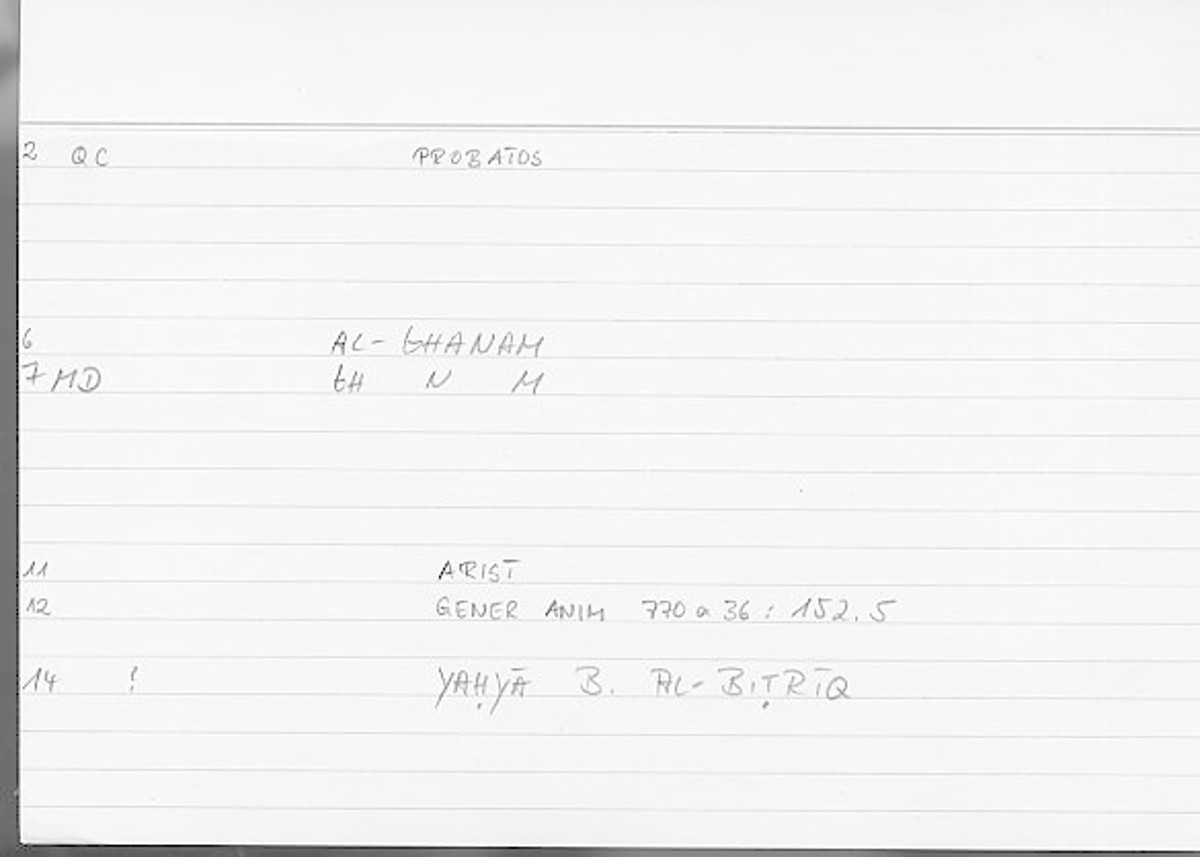 2 QC PROBATOS
6 AL-GHANAM
7 MD GH N M
11 ARIST
12 GENER ANIM 770 a 36 : 152.5
14 ! YAḤYĀ B. AL-BIṬRĪQ